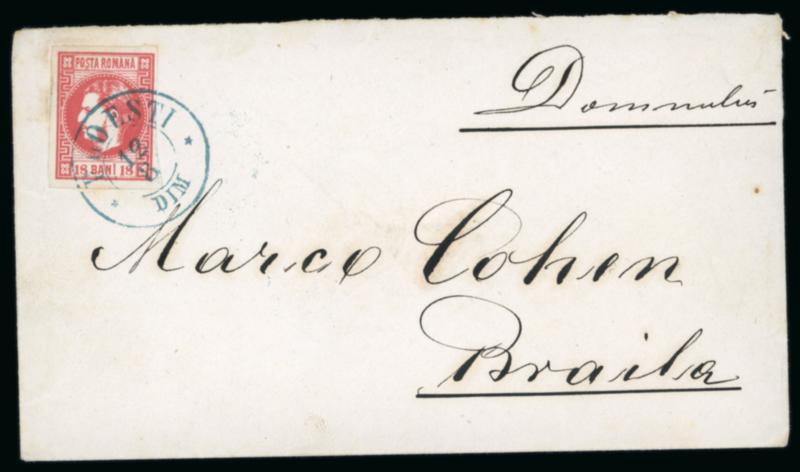 POSTA ROMANA
18 BANI 18
DIM
Domnului
Marco Cohen
Braila